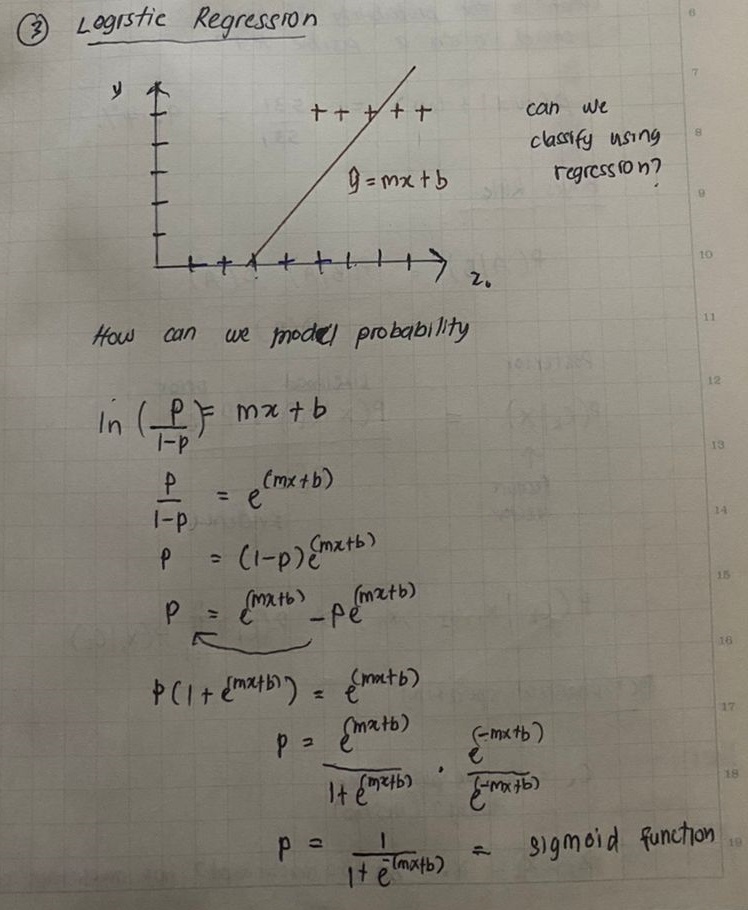 ③ Logistic Regression
y
+ + + + +
can we
classify using
regression?
ŷ = mx + b
x.
How can we model probability
ln (p/1-p) = mx + b
p/1-p = e^(mx+b)
p = (1-p)e^(mx+b)
p = e^(mx+b) - pe^(mx+b)
p(1 + e^(mx+b)) = e^(mx+b)
p = e^(mx+b)/1+e^(mx+b) · e^(-mx+b)/e^(-mx+b)
p = 1/1+e^-(mx+b) = sigmoid function
6
7
8
9
10
11
12
13
14
15
16
17
18
19